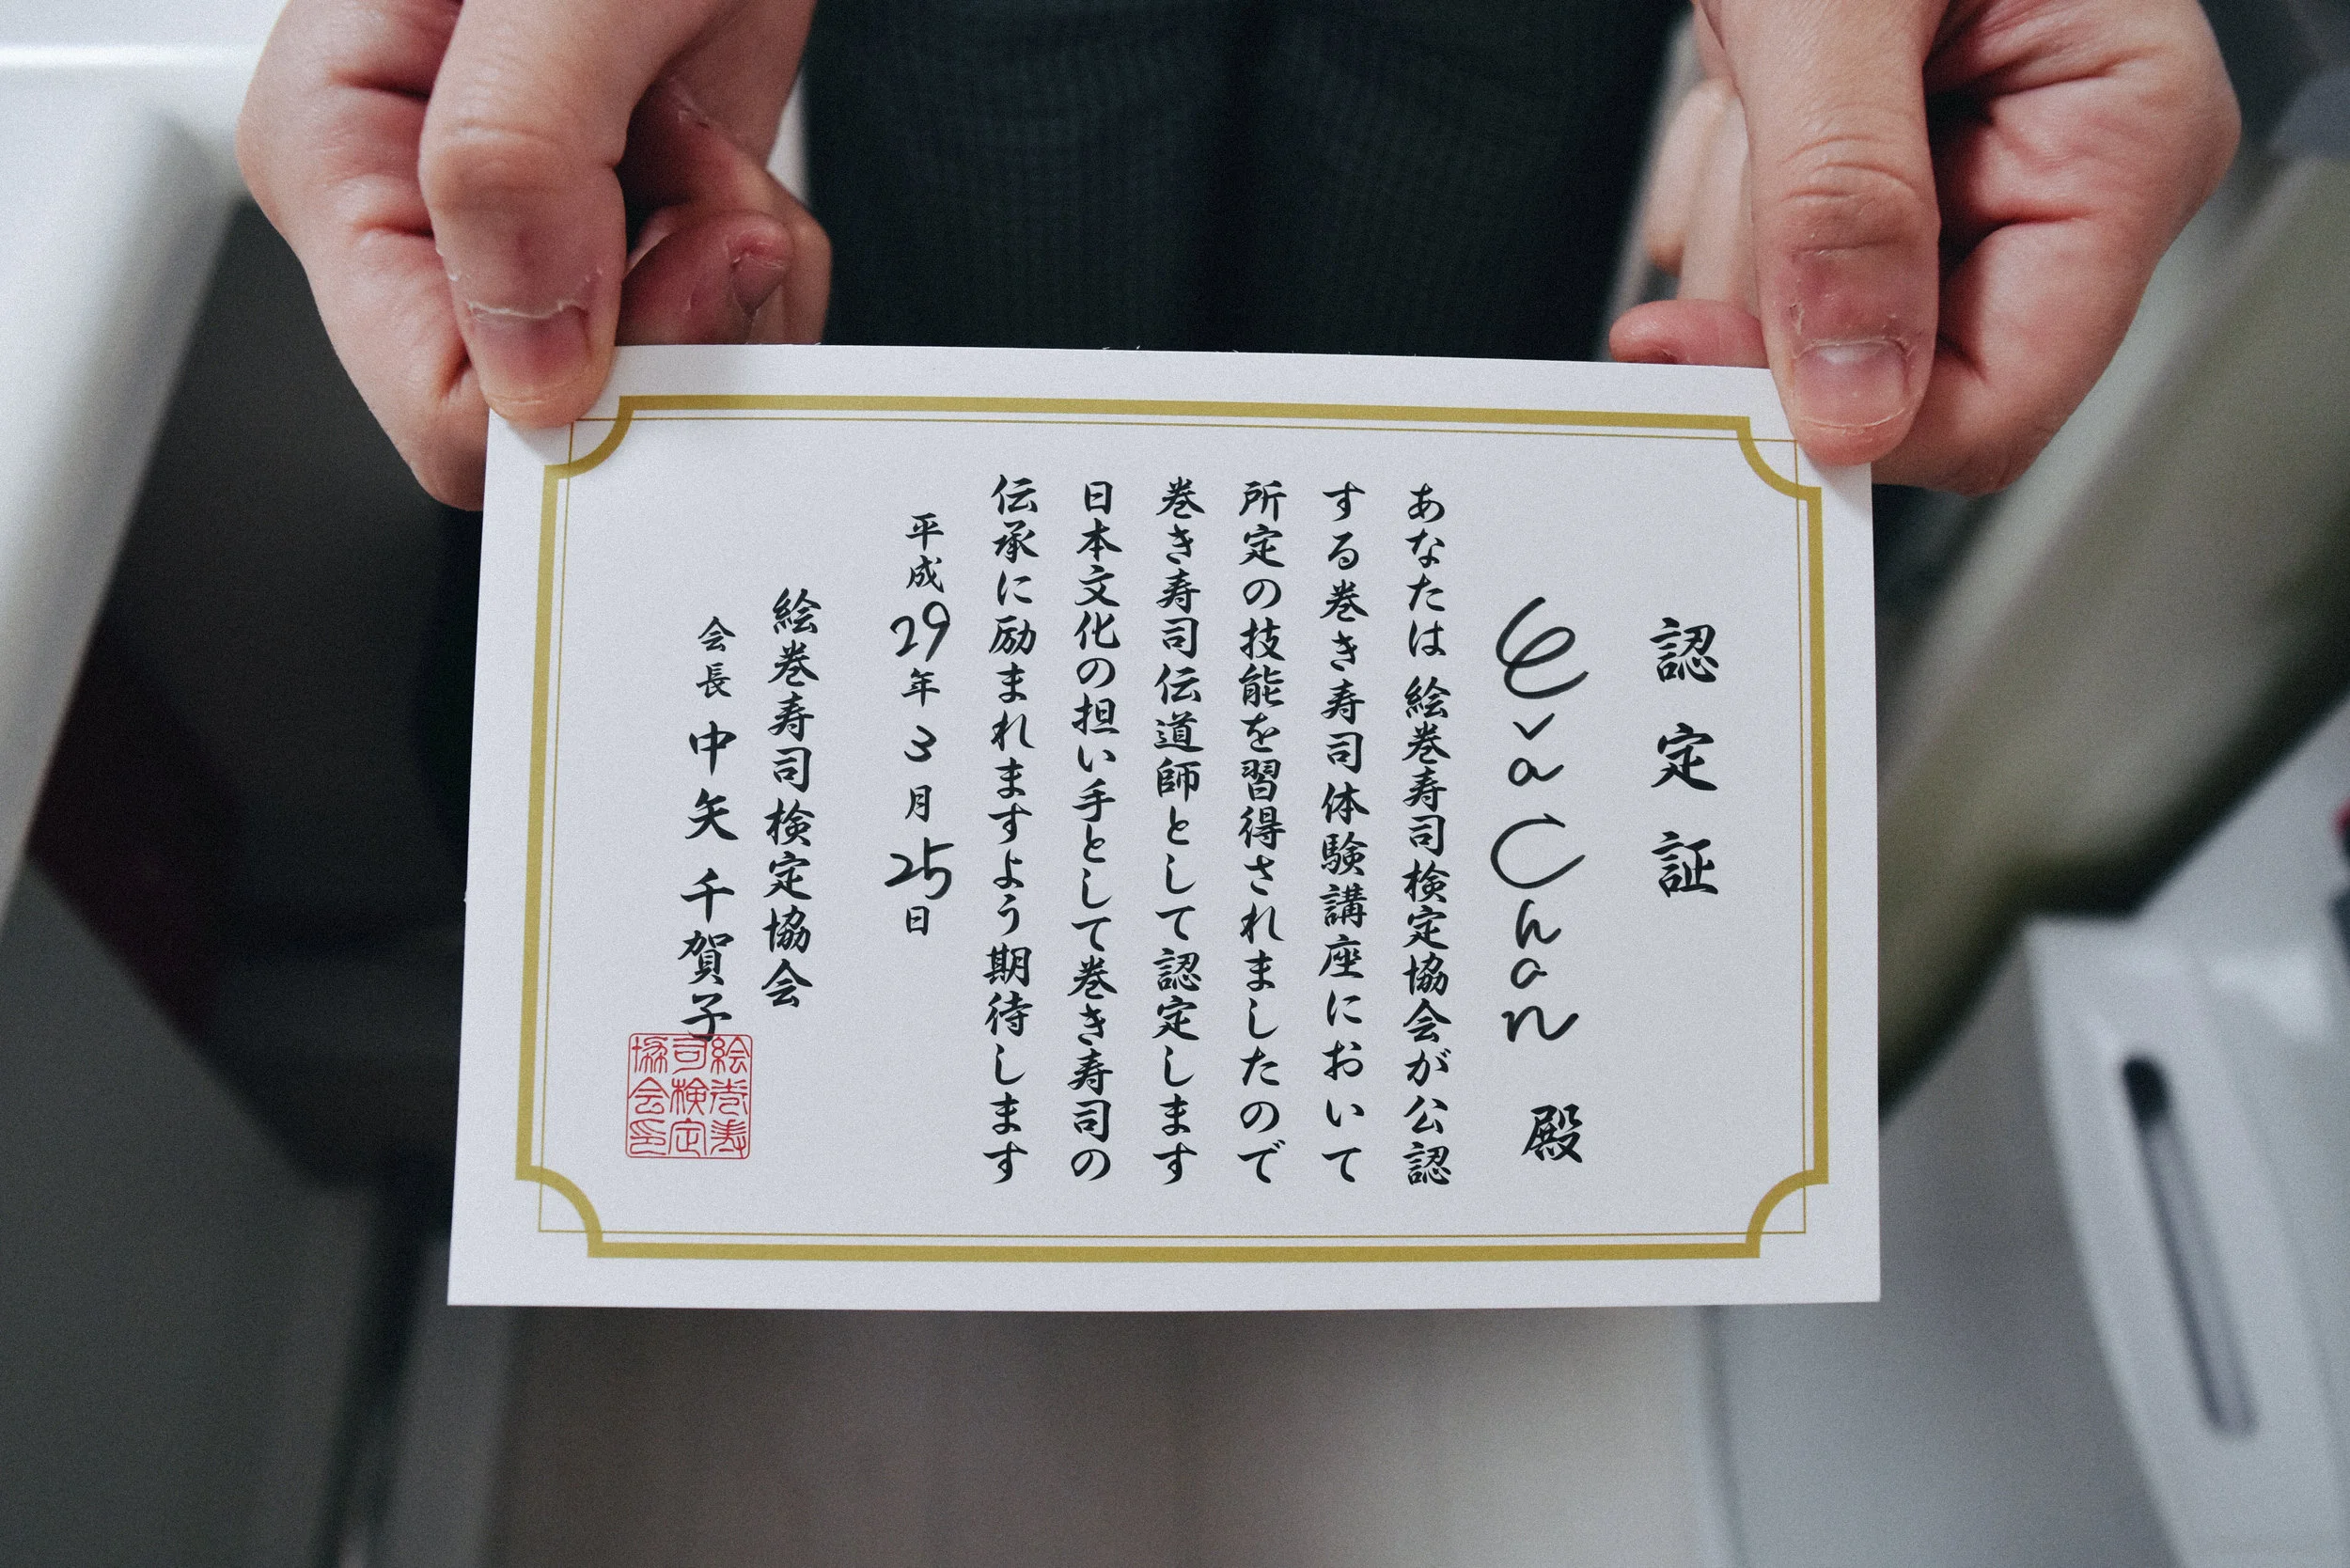 認定証
Eva Chan 殿
あなたは絵巻寿司検定協会が公認
する巻き寿司体験講座において
所定の技能を習得されましたので
巻き寿司伝道師として認定します
日本文化の担い手として巻き寿司の
伝承に励まれますよう期待します
平成29年3月25日
絵巻寿司検定協会
会長 中矢千賀子
絵巻寿
司検定
協会印